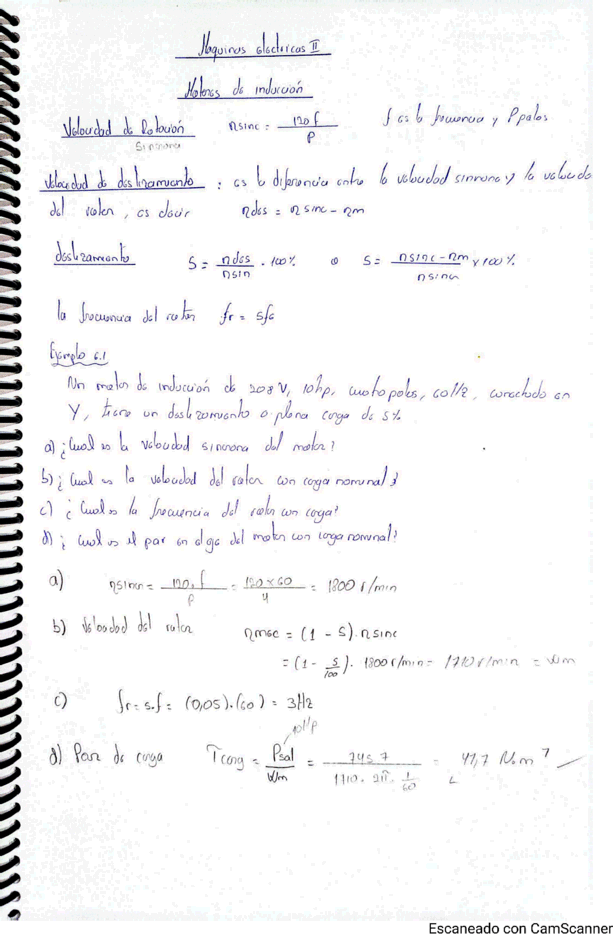 Maquinas electricas II
Motores de inducción
Velocidad de Rotación nsinc = 120 f / P f es la frecuencia y P polos
Sincrona
Velocidad de deslizamiento : es la diferencia entre la velocidad sincrona y la velocidad
del rotor, es decir ndes = nsinc - nm
deslizamiento S = ndes / nsin . 100% o S = nsinc - nm / nsinc x 100%
la frecuencia del rotor fr = sfe
Ejemplo 6.1
Un motor de inducción de 208 V, 10hp, cuatro polos, 60 Hz, conectado en
Y, tiene un deslizamiento a plena carga de 5%
a) ¿Cual es la velocidad sincrona del motor?
b) ¿Cual es la velocidad del rotor con carga nominal?
c) ¿Cual es la frecuencia del rotor con carga?
d) ¿Cual es el par en el eje del motor con carga nominal?
a) nsincn = 120.f / P = 120x60 / 4 = 1800 r/min
b) Velocidad del rotor nmec = (1 - S).nsinc
= (1 - 5/100). 1800 r/min = 1710 r/min = Wm
c) fr = s.f = (0,05).(60) = 3Hz
10Hp
d) Par de carga Tcarg = Psal / Wm = 7457 / 1710 . 2π . 1/60 = 41,7 N.m
Escaneado con CamScanner